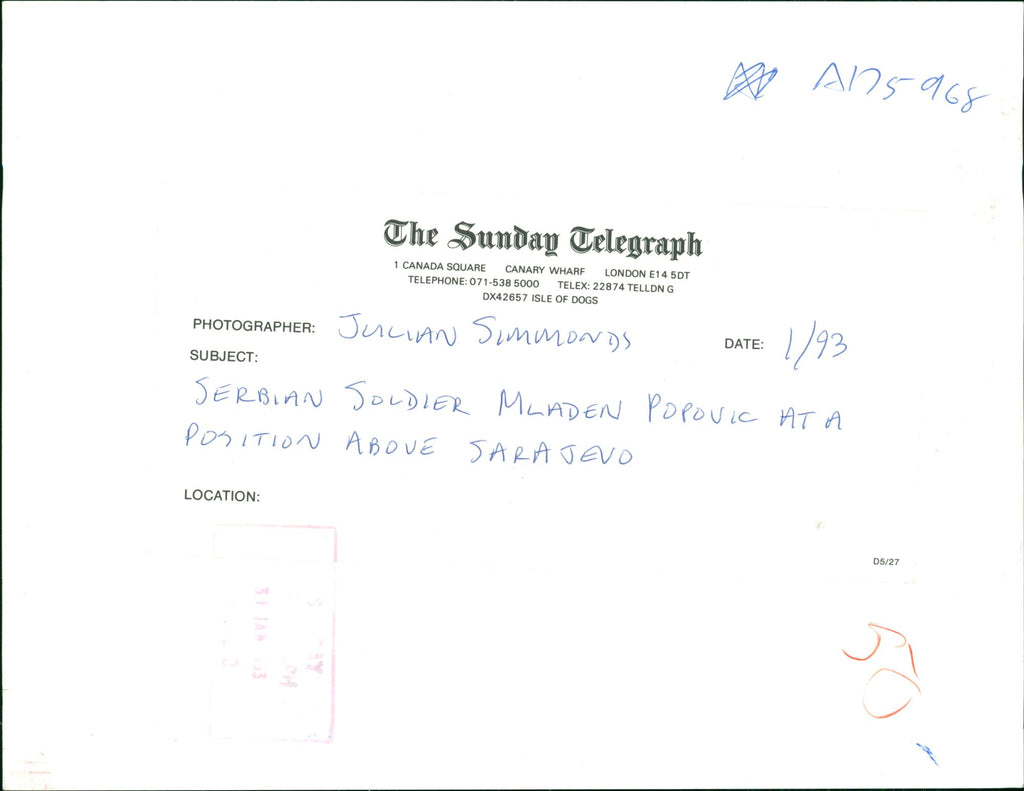 A175968
The Sunday Telegraph
1 CANADA SQUARE CANARY WHARF LONDON E14 5DT
TELEPHONE: 071-538 5000 TELEX: 22874 TELLDN G
DX42657 ISLE OF DOGS
PHOTOGRAPHER: JULIAN SIMMONDS DATE: 1/93
SUBJECT:
SERBIAN SOLDIER MLADEN POPOVIC AT A
POSITION ABOVE SARAJEVO
LOCATION:
D5/27